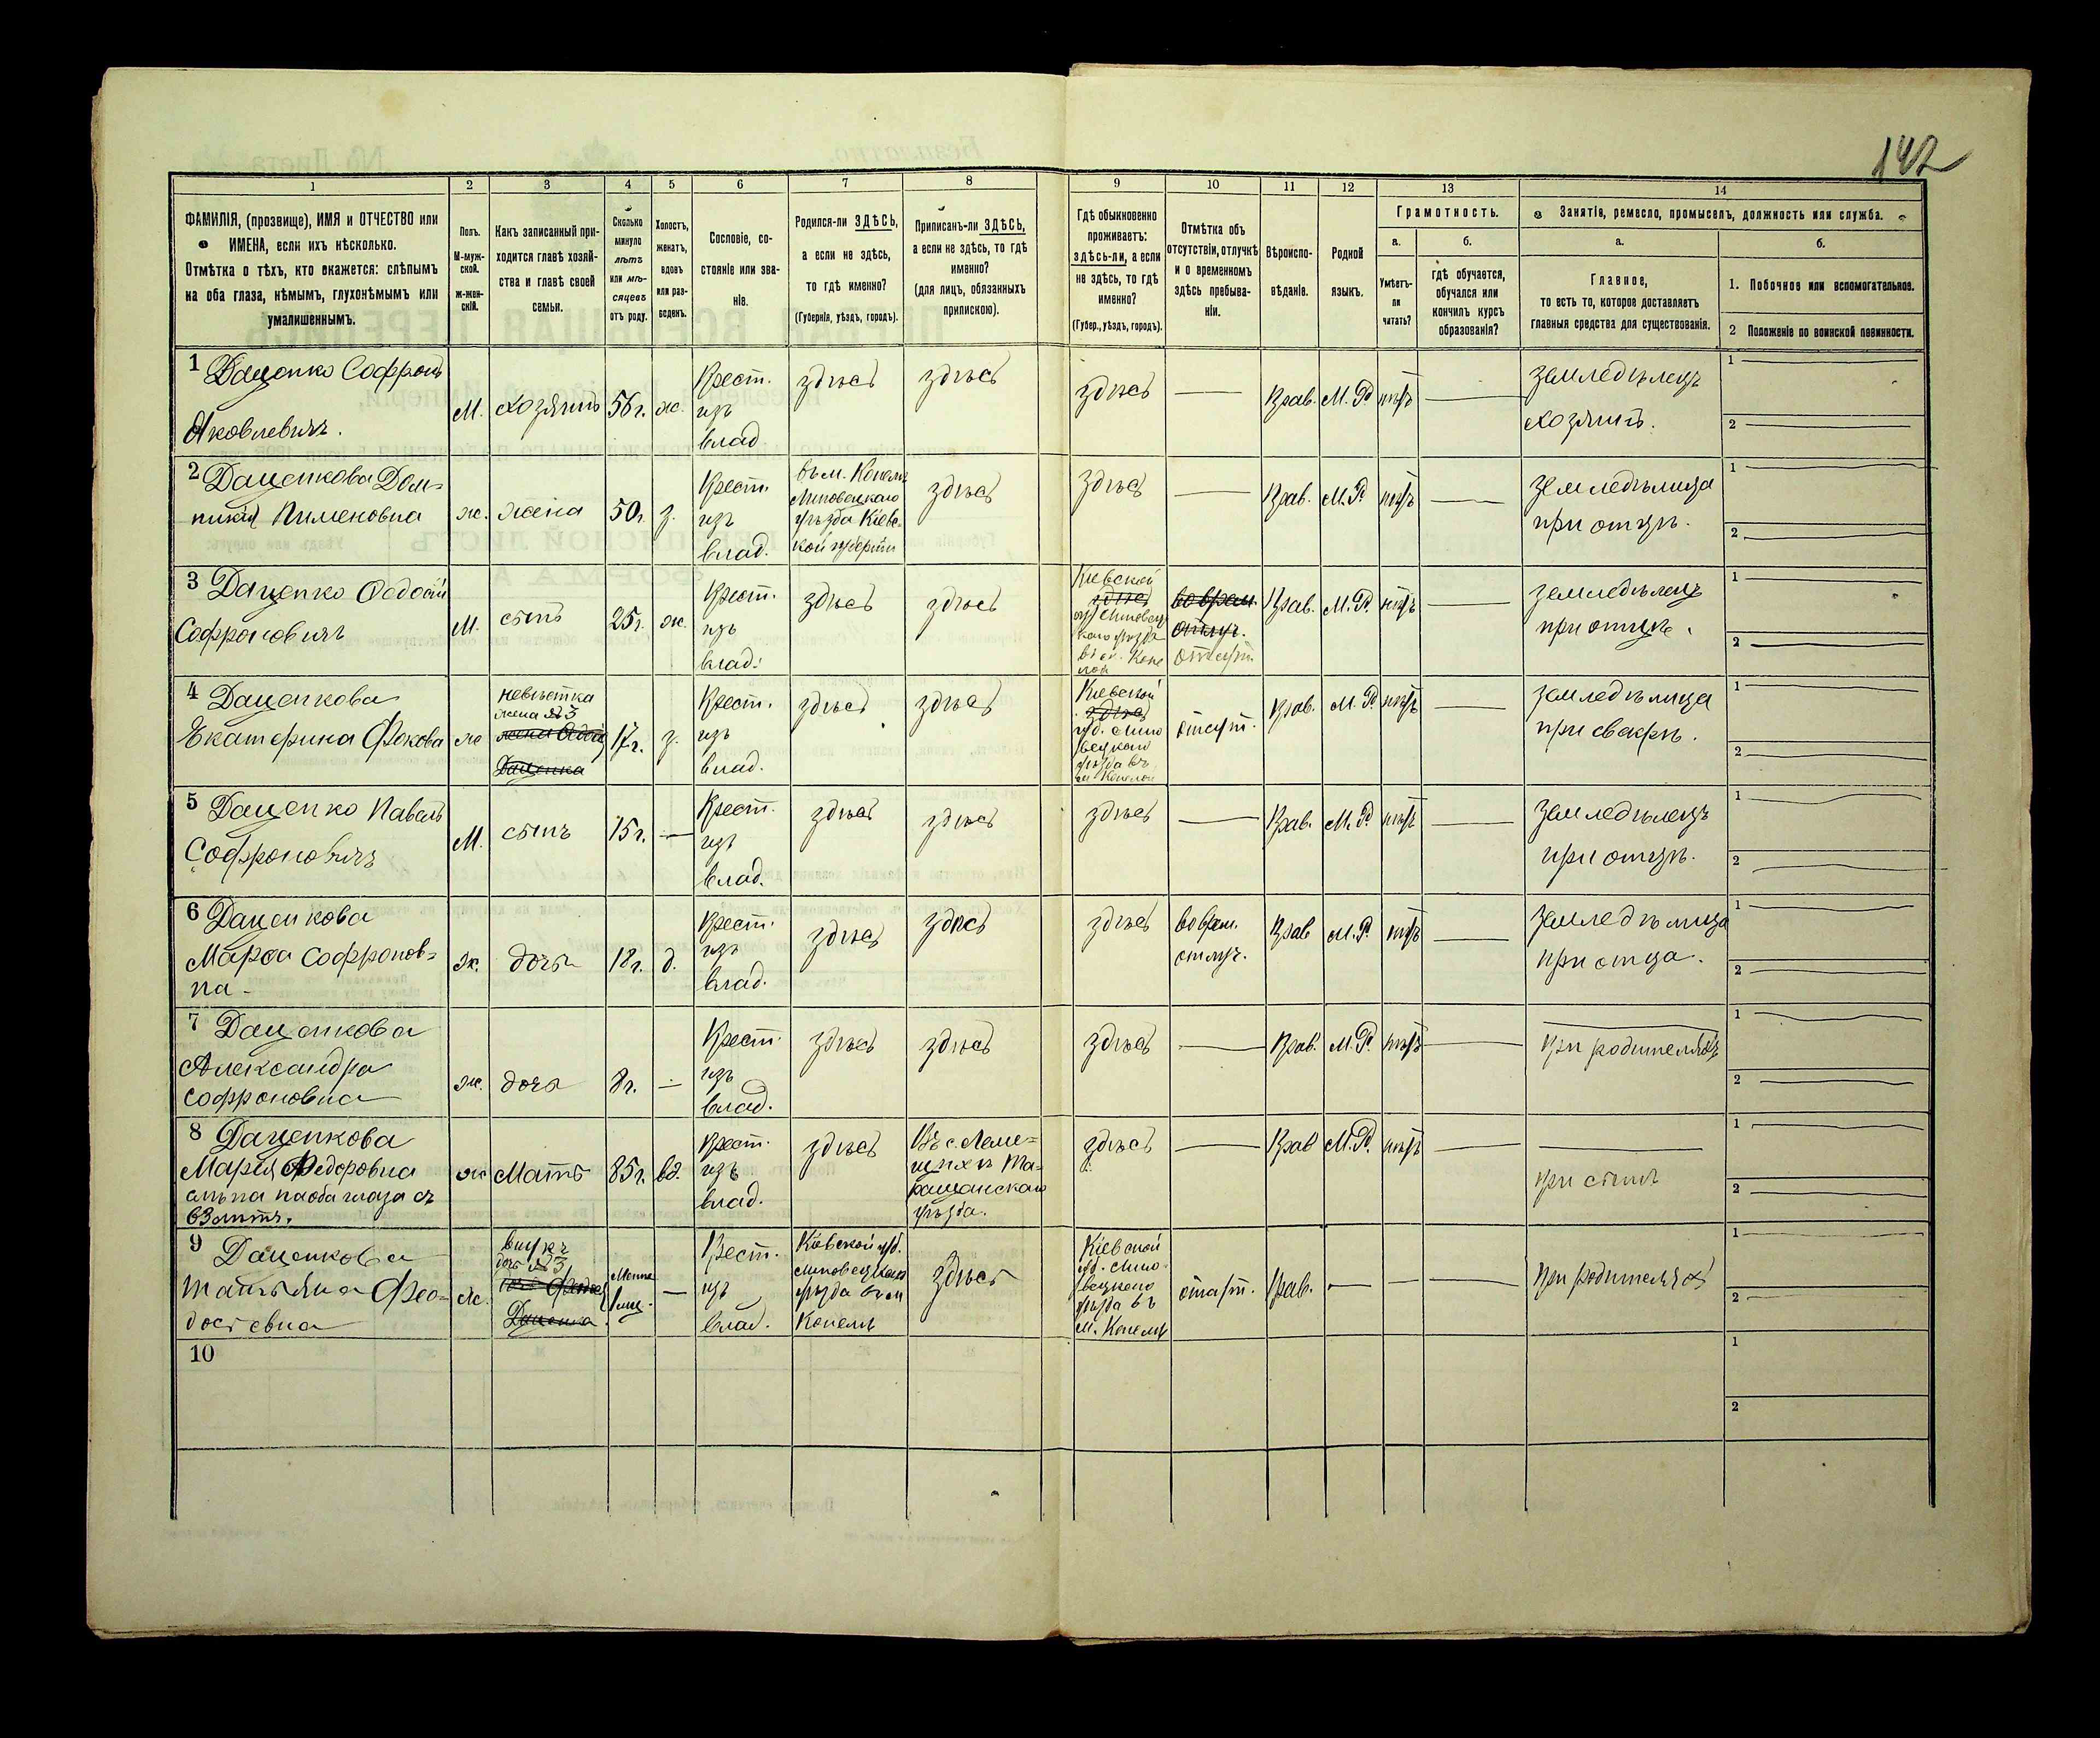 142
1
2
3
4
5
6
7
8
9
10
11
12
13
14
ФАМИЛІЯ, (прозвище), ИМЯ и ОТЧЕСТВО или
ИМЕНА, если ихъ нѣсколько.
Отмѣтка о тѣхъ, кто окажется: слѣпымъ
на оба глаза, нѣмымъ, глухонѣмымъ или
умалишеннымъ.
Полъ.
М-муж-
ской.
ж-жен-
скій.
Какъ записанный при-
ходится главѣ хозяй-
ства и главѣ своей
семьи.
Сколько
минуло
лѣтъ
или мѣ-
сяцевъ
отъ роду.
Холостъ,
женатъ,
вдовъ
или раз-
веденъ.
Сословіе, со-
стояніе или зва-
ніе.
Родился-ли ЗДѢСЬ,
а если не здѣсь,
то гдѣ именно?
(Губернія, уѣздъ, городъ).
Приписанъ-ли ЗДѢСЬ,
а если не здѣсь, то гдѣ
именно?
(для лицъ, обязанныхъ
припискою).
Гдѣ обыкновенно
проживаетъ:
здѣсь-ли, а если
не здѣсь, то гдѣ
именно?
(Губер., уѣздъ, городъ).
Отмѣтка объ
отсутствіи, отлучкѣ
и о временномъ
здѣсь пребыва-
ніи.
Вѣроиспо-
вѣданіе.
Родной
языкъ.
Грамотность.
а.
Умѣетъ-
ли
читать?
б.
гдѣ обучается,
обучался или
кончилъ курсъ
образованія?
Занятіе, ремесло, промыселъ, должность или служба.
а.
Главное,
то есть то, которое доставляетъ
главныя средства для существованія.
б.
1. Побочное или вспомогательное.
2 Положеніе по воинской повинности.
1 Даценко Софронъ
Яковлевичъ.
М.
хозяинъ
56 г.
ж.
Крест.
изъ
влад
здѣсь
здѣсь
здѣсь
—
Прав.
М. Р.
нѣтъ
—
земледѣлецъ
хозяинъ.
1
2
2 Даценкова Дом-
никія Пименовна
ж.
жена
50 г.
з.
Крест.
изъ
влад.
въ м. Конелѣ
Липовецкаго
уѣзда Кіевс-
кой губерніи
здѣсь
здѣсь
—
Прав.
М. Р.
нѣтъ
—
земледѣлица
при отцѣ.
1
2
3 Даценко Ѳедосій
Софроновичъ
М.
сынъ
25 г.
ж.
Крест.
изъ
влад.
здѣсь
здѣсь
Кіевской
здѣсь
губ Липовец
каго уѣзда
въ м. Коне
лой
во врем.
отлуч.
отсут.
Прав.
М. Р.
нѣтъ
—
земледѣлецъ
при отцѣ.
1
2
4 Даценкова
Екатерина Фокова
ж
невѣстка
жена №3
жена Ѳедосія
Даценка
17 г.
з.
Крест.
изъ
влад.
здѣсь
здѣсь
Кіевской
здѣсь
губ. Липо
вецкаго
уѣзда въ
м Конелой
отсут.
Прав.
М. Р.
нѣтъ
—
земледѣлица
при свекрѣ.
1
2
5 Даценко Павелъ
Софроновичъ
М.
сынъ
15 г.
—
Крест.
изъ
влад.
здѣсь
здѣсь
здѣсь
—
Прав.
М. Р.
нѣтъ
—
земледѣлецъ
при отцѣ.
1
2
6 Даценкова
Марѳа Софронов-
на
ж.
дочь
18 г.
д.
Крест.
изъ
влад.
здѣсь
здѣсь
здѣсь
во врем.
отлуч.
Прав
М. Р.
нѣтъ
—
земледѣлица
при отца.
1
2
7 Даценкова
Александра
Софроновна
ж.
дочь
8 г.
—
Крест.
изъ
влад.
здѣсь
здѣсь
здѣсь
—
Прав.
М. Р.
нѣтъ
—
при родителяхъ
1
2
8 Даценкова
Марія Федоровна
слѣпа на оба глаза съ
63 лѣтъ.
ж
Мать
85 г.
вд.
Крест.
изъ
влад.
здѣсь
Въ с. Леме-
щихѣ Та-
ращанскаго
уѣзда.
здѣсь
—
Прав
М. Р.
нѣтъ
—
при сынѣ
1
2
9 Даценкова
Татьяна Фео-
досіевна
ж.
внукъ
дочь №3
Даценка.
Менѣе
1 мц.
—
Крест.
изъ
влад.
Кіевской губ.
Липовецкаго
уѣзда въ м
Конелѣ
здѣсь
Кіевской
губ. Липо-
вецкаго
уѣзда въ
м. Конелѣ
отсут.
Прав.
—
—
—
при родителях
1
2
10
1
2